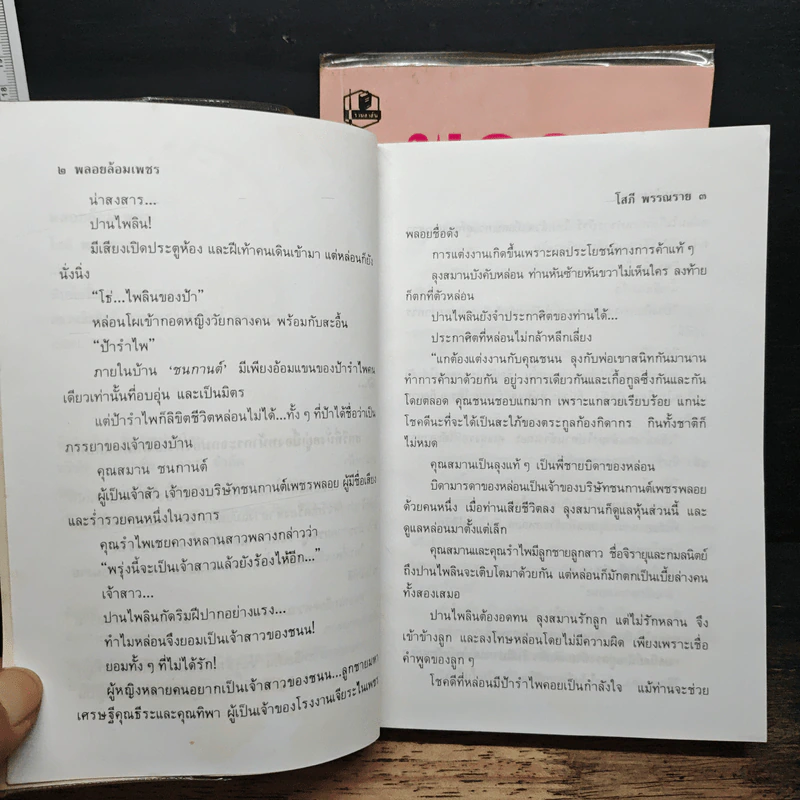 ๒ พลอยล้อมเพชร
น่าสงสาร...
ปานไพลิน!
มีเสียงเปิดประตูห้อง และฝีเท้าคนเดินเข้ามา แต่หล่อนก็ยัง
นั่งนิ่ง
“โธ่...ไพลินของป้า”
หล่อนโผเข้ากอดหญิงวัยกลางคน พร้อมกับสะอื้น
“ป้ารำไพ”
ภายในบ้าน ‘ชนกานต์’ มีเพียงอ้อมแขนของป้ารำไพคน
เดียวเท่านั้นที่อบอุ่น และเป็นมิตร
แต่ป้ารำไพก็ลิขิตชีวิตหล่อนไม่ได้...ทั้ง ๆ ที่ป้าได้ชื่อว่าเป็น
ภรรยาของเจ้าของบ้าน
คุณสมาน ชนกานต์
ผู้เป็นเจ้าสัว เจ้าของบริษัทชนกานต์เพชรพลอย ผู้มีชื่อเสียง
และร่ำรวยคนหนึ่งในวงการ
คุณรำไพเชยคางหลานสาวพลางกล่าวว่า
“พรุ่งนี้จะเป็นเจ้าสาวแล้วยังร้องไห้อีก...”
เจ้าสาว...
ปานไพลินกัดริมฝีปากอย่างแรง...
ทำไมหล่อนจึงยอมเป็นเจ้าสาวของชนน!
ยอมทั้ง ๆ ที่ไม่ได้รัก!
ผู้หญิงหลายคนอยากเป็นเจ้าสาวของชนน...ลูกชายมหา
เศรษฐีคุณธีระและคุณทิพา ผู้เป็นเจ้าของโรงงานเจียระไนเพชร
โสภี พรรณราย ๓
พลอยชื่อดัง
การแต่งงานเกิดขึ้นเพราะผลประโยชน์ทางการค้าแท้ ๆ
ลุงสมานบังคับหล่อน ท่านหันซ้ายหันขวาไม่เห็นใคร ลงท้าย
ก็ตกที่ตัวหล่อน
ปานไพลินยังจำประกาศิตของท่านได้...
ประกาศิตที่หล่อนไม่กล้าหลีกเลี่ยง
“แกต้องแต่งงานกับคุณชนน ลุงกับพ่อเขาสนิทกันมานาน
ทำการค้ามาด้วยกัน อยู่วงการเดียวกันและเกื้อกูลซึ่งกันและกัน
โดยตลอด คุณชนนชอบแกมาก เพราะแกสวยเรียบร้อย แกน่ะ
โชคดีนะที่จะได้เป็นสะใภ้ของตระกูลก้องกิดากร กินทั้งชาติก็
ไม่หมด
คุณสมานเป็นลุงแท้ ๆ เป็นพี่ชายบิดาของหล่อน
บิดามารดาของหล่อนเป็นเจ้าของบริษัทชนกานต์เพชรพลอย
ด้วยคนหนึ่ง เมื่อท่านเสียชีวิตลง ลุงสมานก็ดูแลหุ้นส่วนนี้ และ
ดูแลหล่อนมาตั้งแต่เล็ก
คุณสมานและคุณรำไพมีลูกชายลูกสาว ชื่อจิรายุและกมลนิตย์
ถึงปานไพลินจะเติบโตมาด้วยกัน แต่หล่อนก็มักตกเป็นเบี้ยล่างคน
ทั้งสองเสมอ
ปานไพลินต้องอดทน ลุงสมานรักลูก แต่ไม่รักหลาน จึง
เข้าข้างลูก และลงโทษหล่อนโดยไม่มีความผิด เพียงเพราะเชื่อ
คำพูดของลูก ๆ
โชคดีที่หล่อนมีป้ารำไพคอยเป็นกำลังใจ แม้ท่านจะช่วย